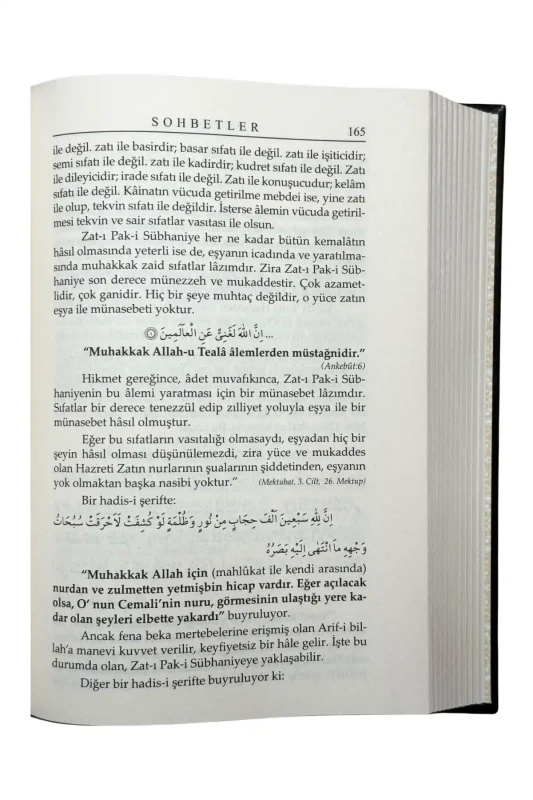 SOHBETLER 165
ile değil. zatı ile basirdir; basar sıfatı ile değil. zatı ile işiticidir;
semi sıfatı ile değil. zatı ile kadirdir; kudret sıfatı ile değil. Zatı
ile dileyicidir; irade sıfatı ile değil. Zatı ile konuşucudur; kelâm
sıfatı ile değil. Kâinatın vücuda getirilme mebdei ise, yine zatı
ile olup, tekvin sıfatı ile değildir. İsterse âlemin vücuda getiril-
mesi tekvin ve sair sıfatlar vasıtası ile olsun.
Zat-ı Pak-i Sübhaniye her ne kadar bütün kemalâtın
hâsıl olmasında yeterli ise de, eşyanın icadında ve yaratılma-
sında muhakkak zaid sıfatlar lâzımdır. Zira Zat-ı Pak-i Süb-
haniye son derece münezzeh ve mukaddestir. Çok azamet-
lidir, çok ganidir. Hiç bir şeye muhtaç değildir, o yüce zatın
eşya ile münasebeti yoktur.
... اِنَّ اللّٰهَ لَغَنِىٌّ عَنِ الْعَالَمِينَ ﴿٦﴾
“Muhakkak Allah-u Tealâ âlemlerden müstağnidir.”
(Ankebût:6)
Hikmet gereğince, âdet muvafıkınca, Zat-ı Pak-i Süb-
haniyenin bu âlemi yaratması için bir münasebet lâzımdır.
Sıfatlar bir derece tenezzül edip zılliyet yoluyla eşya ile bir
münasebet hâsıl olmuştur.
Eğer bu sıfatların vasıtalığı olmasaydı, eşyadan hiç bir
şeyin hâsıl olması düşünülemezdi, zira yüce ve mukaddes
olan Hazreti Zatın nurlarının şualarının şiddetinden, eşyanın
yok olmaktan başka nasibi yoktur.” (Mektubat, 3. Cilt, 26. Mektup)
Bir hadis-i şerifte:
اِنَّ لِلّٰهِ سَبْعِينَ اَلْفَ حِجَابٍ مِنْ نُورٍ وَظُلْمَةٍ لَوْ كُشِفَتْ لَاَحْرَقَتْ سُبُحَاتُ
وَجْهِهِ مَا انْتَهٰى اِلَيْهِ بَصَرُهُ
“Muhakkak Allah için (mahlûkat ile kendi arasında)
nurdan ve zulmetten yetmişbin hicap vardır. Eğer açılacak
olsa, O’ nun Cemali’nin nuru, görmesinin ulaştığı yere ka-
dar olan şeyleri elbette yakardı” buyruluyor.
Ancak fena beka mertebelerine erişmiş olan Arif-i bil-
lah’a manevi kuvvet verilir, keyfiyetsiz bir hâle gelir. İşte bu
durumda olan, Zat-ı Pak-i Sübhaniyeye yaklaşabilir.
Diğer bir hadis-i şerifte buyruluyor ki: